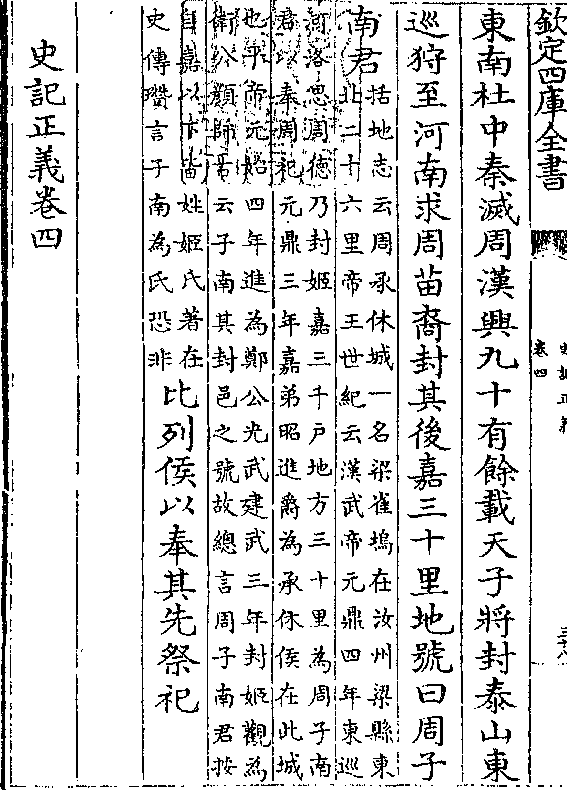 欽定四庫全書
史記正義
卷四
東南杜中秦滅周漢興九十有餘載天子將封泰山東
巡狩至河南求周苗裔封其後嘉三十里地號曰周子
南君
括地志云周承休城一名梁雀塢在汝州梁縣東
北二十六里帝王世紀云漢武帝元鼎四年東巡
河洛思周德乃封姬嘉三千戶地方三十里為周子南
君以奉周祀元鼎三年嘉弟昭進爵為承休侯在此城
也平帝元始四年進為鄭公光武建武三年封姬觀為
衛公顏師古云子南其封邑之號故總言周子南君按
自嘉以下皆姓姬氏著在
史傳瓚言子南為氏恐非
比列侯以奉其先祭祀
史記正義卷四